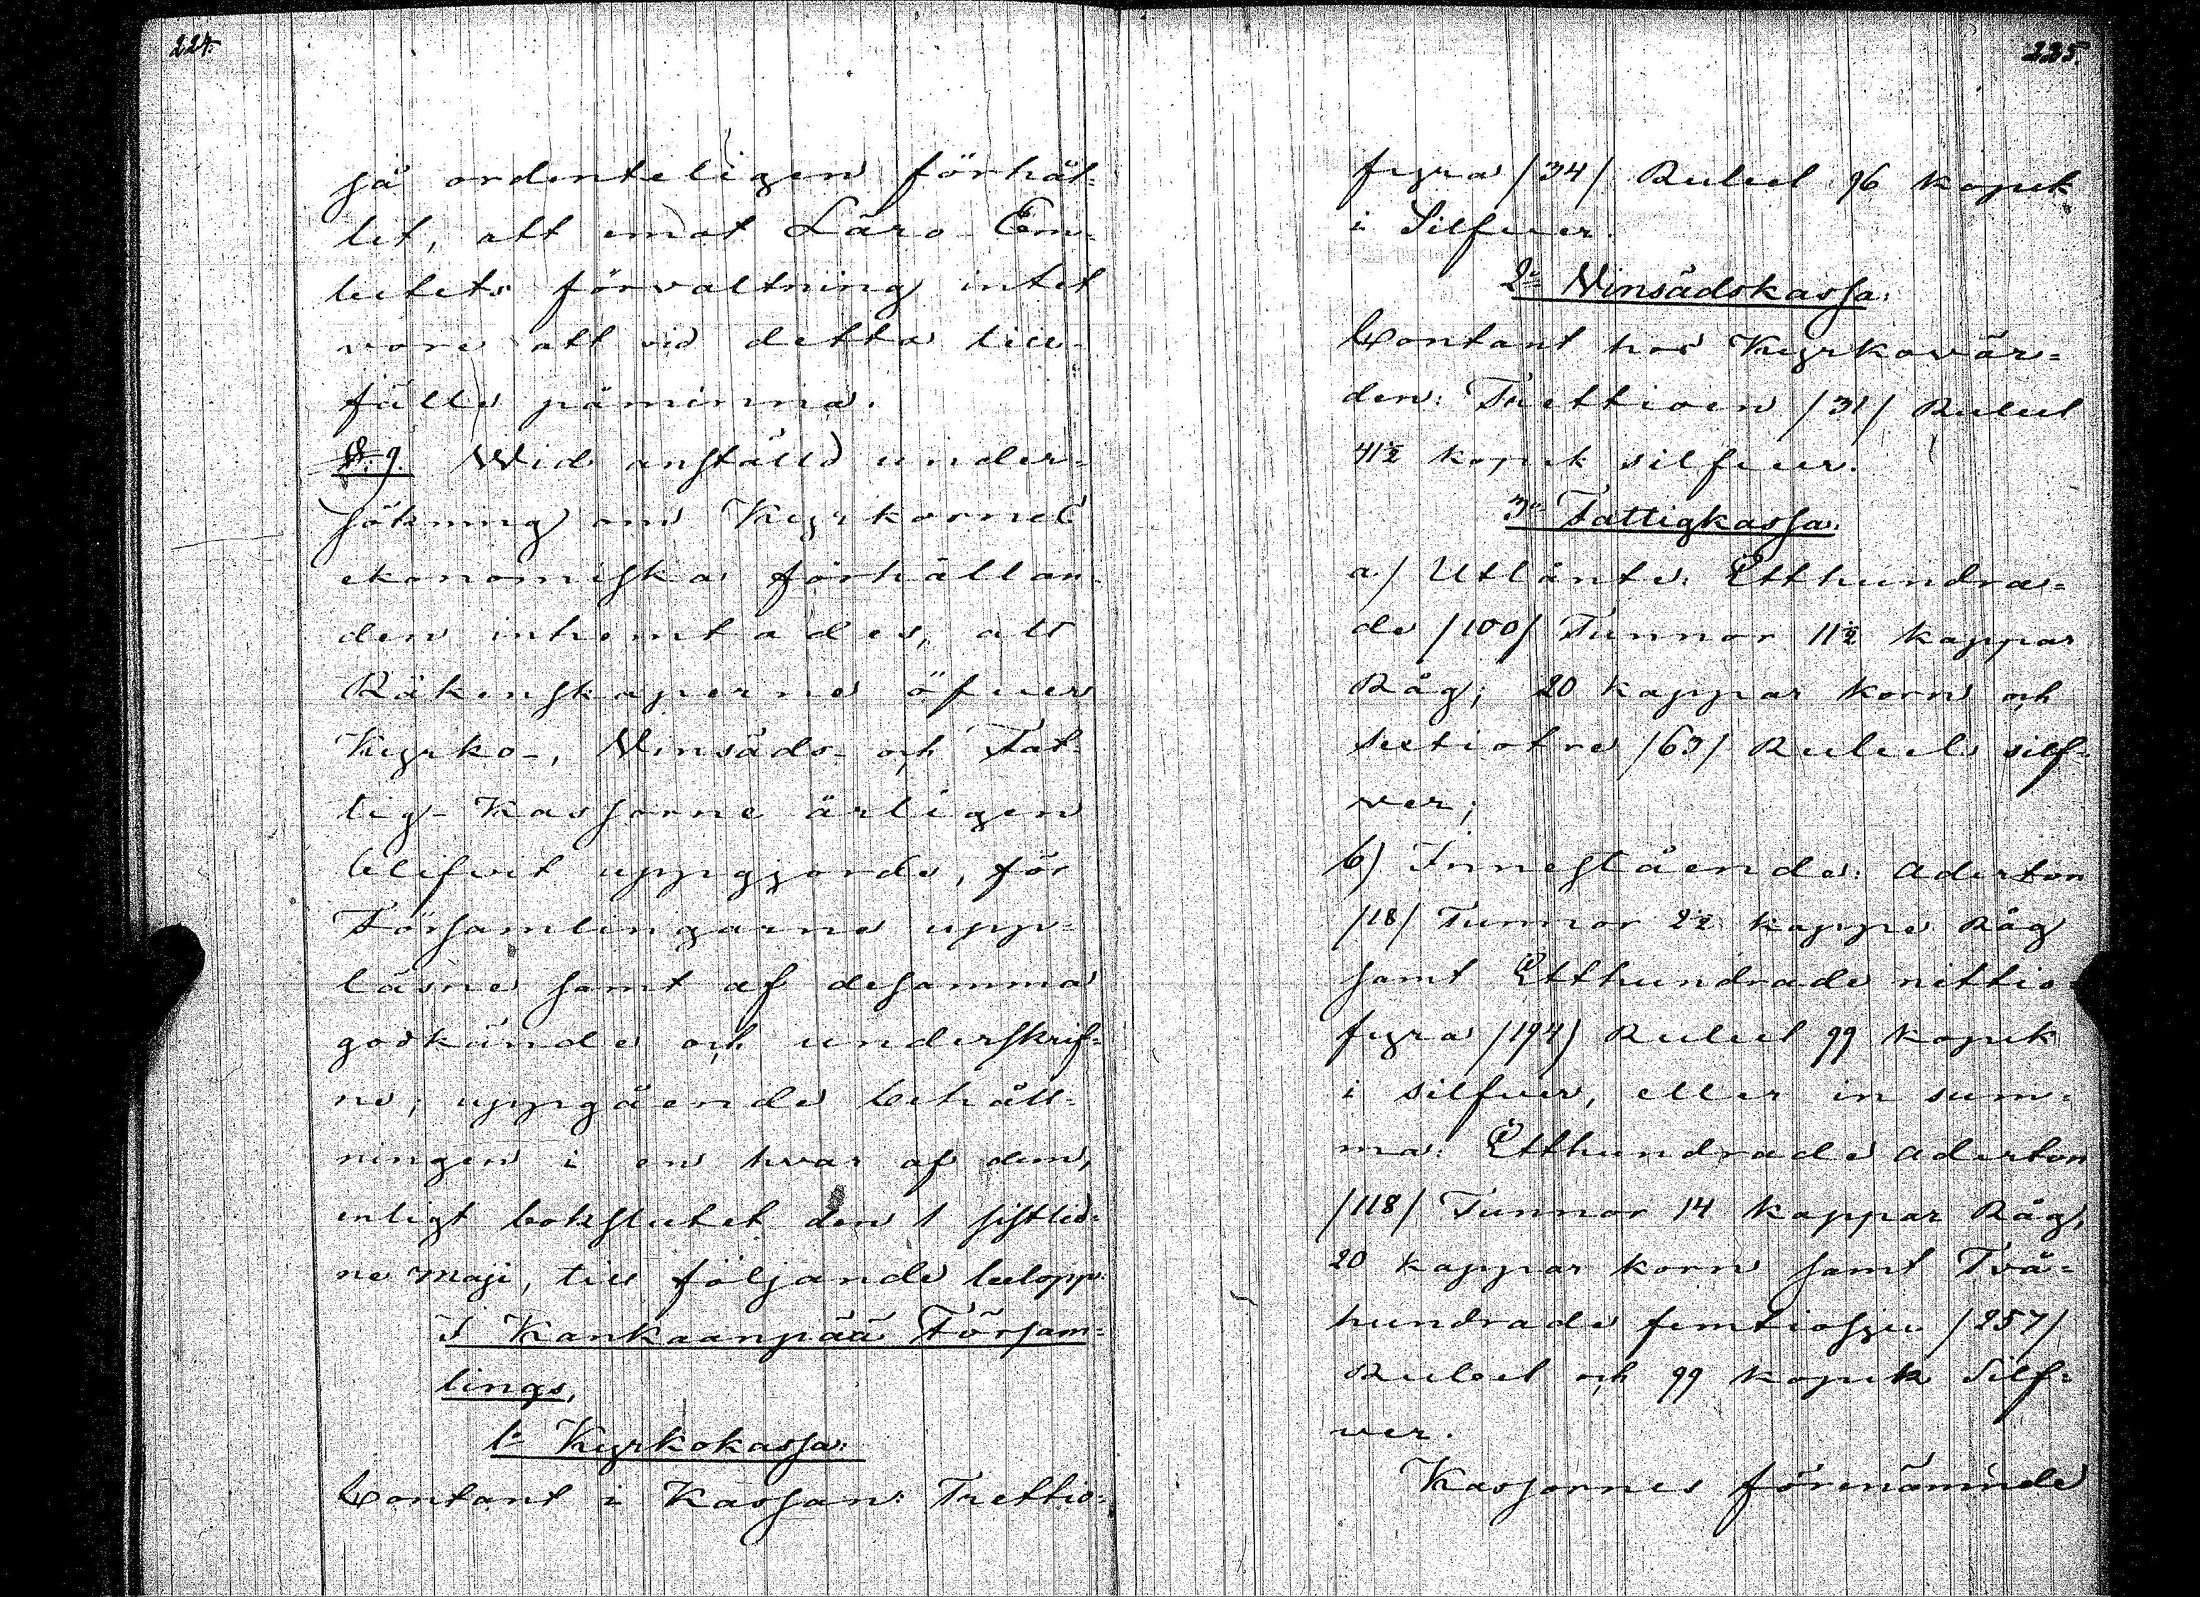 224.
så ordenteligen förhål-
let, att emot Läro-Em-
betets förvaltning intet
vore att vid detta till-
fälle påminna.
§. 9. Wid anställd under-
sökning om Kyrkornes
ekonomiska förhållan-
den inhemtades, att
Räkenskaperne öfver
Kyrko-, Vinsäds- och Fat-
tig-Kassorne årligen
blifvit uppgjorde, för
Församlingarne upp-
läsne samt af desamma
godkände och underskrif-
ne; uppgående behåll-
ningen i en hvar af dem,
enligt bokslutet den 1 sistlid-
ne Maji, till följande belopp:
I Kankaanpää Försam-
lings,
1o Kyrkokassa:
Contant i Kassan: Trettio-
225.
fyra /34/ Rubel 96 kopek
i Silfver.
2o Vinsädskassa:
Contant hos Kyrkovär-
den: Trettioen /31/ Rubel
41½ kopek silfver.
3o Fattigkassa:
a/ Utlånte: Etthundra-
de /100/ Tunnor 11½ kappar
Råg; 20 kappar korn och
sextiotre /63/ Rubel silf-
ver;
b) Innestående: Aderton
/18/ Tunnor 2½ kappe Råg
samt Etthundrade nittio-
fyra /194/ Rubel 99 kopek
i silfver, eller in sum-
ma: Etthundrade Aderton
/118/ Tunnor 14 kappar Råg,
20 kappar korn samt Två-
hundrade femtiosju /257/
Rubel och 99 kopek Silf-
ver.
Kassornes förenämnde